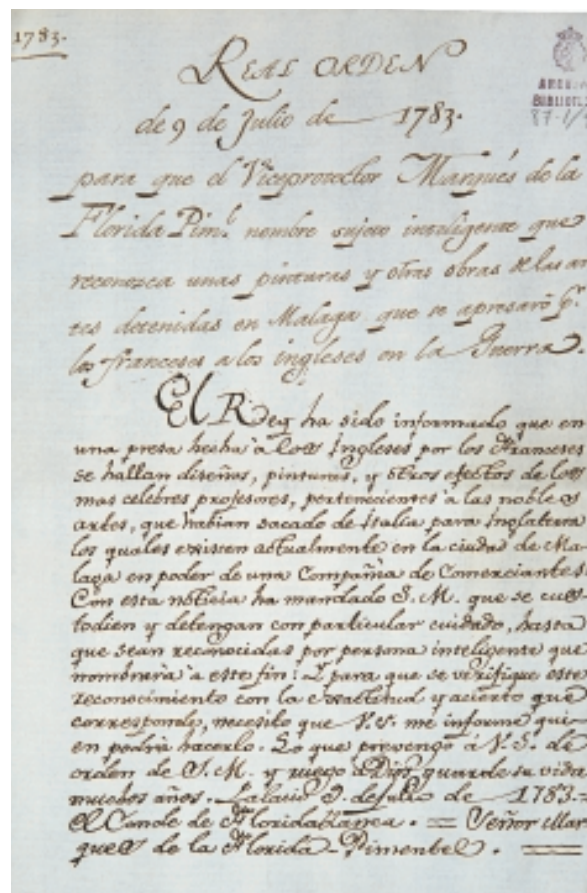 1783.
REAL ORDEN
de 9 de Julio de 1783.
para que el Viceprotector Marqués de la
Florida Pim.l nombre sujeto inteligente que
reconozca unas pinturas y otras obras de las ar
tes detenidas en Malaga que se apresarō pr
los franceses a los ingleses en la Guerra.
El Rey ha sido informado que en
una presa hecha à los Ingleses por los Franceses
se hallan diseños, pinturas, y otros efectos de los
mas celebres profesores, pertenecientes à las nobles
artes, que habian sacado de Italia para Inglaterra
los quales existen actualmente en la ciudad de Ma-
laga en poder de una Compañia de Comerciantes
Con esta noticia ha mandado S. M. que se cus-
todien y detengan con particular cuidado, hasta
que sean reconocidas por persona inteligente que
nombrarà à este fin: Y para que se verifique este
reconocimiento con la exactitud y acierto que
corresponde, necesito que V.S. me informe qui-
en podria hacerlo. Lo que prevengo à V. S. de
orden de S. M. y ruego à Dios guarde su vida
muchos años. Palacio 9. de Julio de 1783.=
El Conde de Floridablanca. = Señor Mar
ques de la Florida-Pimentel. =